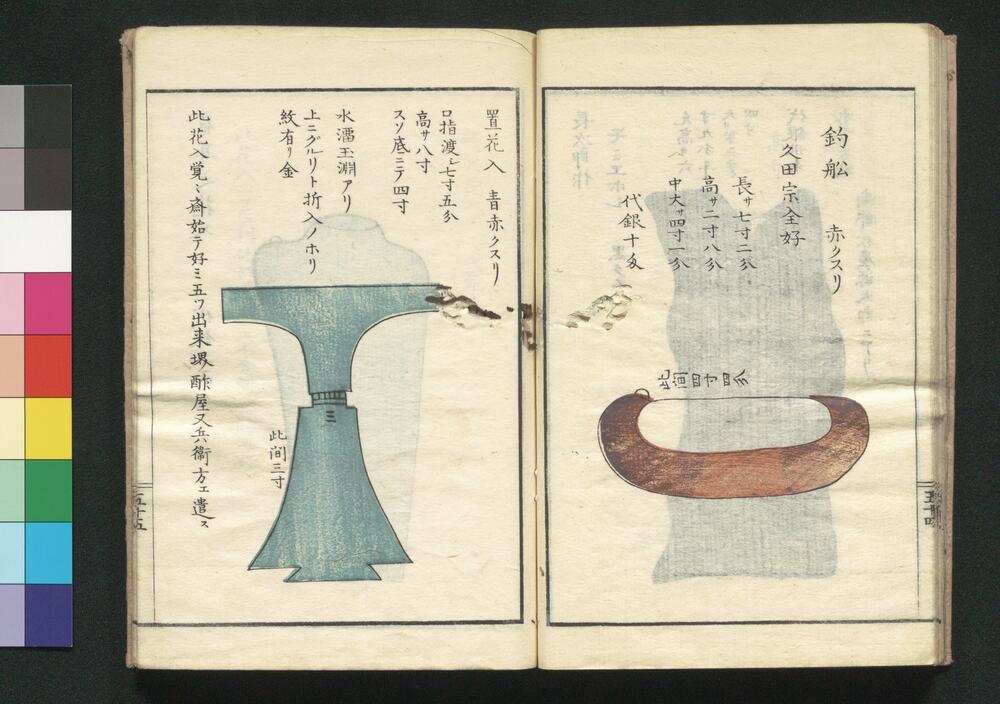 釣舩　赤クスリ
久田宗全好
長サ七寸二分
高サ二寸八分
中大サ四寸一分
代銀十匁
此間四寸四分
五十四
置花入　青赤クスリ
口指渡シ七寸五分
高サ八寸
スソ底ニテ四寸
水溜玉淵アリ
上ニグルリト折入ノホリ
紋有リ金
此間三寸
此花入覚々齋始テ好ミ五ツ出来堺酢屋又兵衛方エ遣ス
五十五